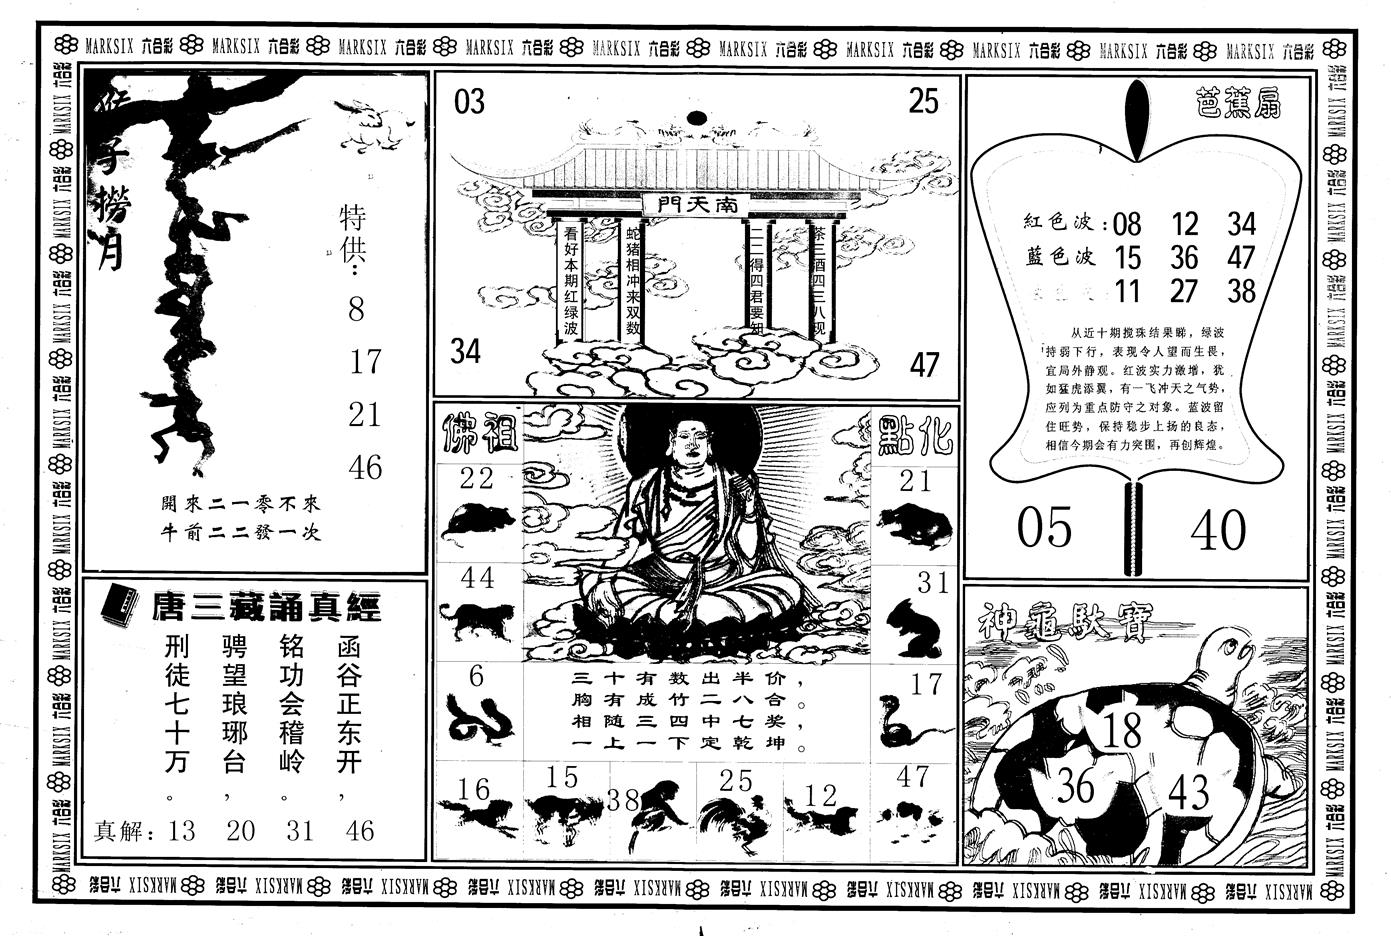 MARKSIX 六合彩 MARKSIX 六合彩 MARKSIX 六合彩 MARKSIX 六合彩 MARKSIX 六合彩 MARKSIX 六合彩 MARKSIX 六合彩 MARKSIX 六合彩 MARKSIX 六合彩 MARKSIX 六合彩
猴子撈月
特供：
8
17
21
46
開來二一零不來
牛前二二發一次
唐三藏誦真經
函谷正东开，
铭功会稽岭。
骋望琅琊台，
刑徒七十万。
真解：13 20 31 46
03 25
南天門
看好本期红绿波
蛇猪相冲来双数
一二得四君要知
茶三酒四三八现
34 47
佛祖
點化
22
44
6
16
15
38
25
12
47
21
31
17
三十有数出半价，
胸有成竹二八合。
相随三四中七奖，
一上一下定乾坤。
芭蕉扇
紅色波：08 12 34
藍色波 15 36 47
11 27 38
从近十期搅珠结果睇，绿波
持弱下行，表现令人望而生畏，
宜局外静观。红波实力激增，犹
如猛虎添翼，有一飞冲天之气势，
应列为重点防守之对象。蓝波留
住旺势，保持稳步上扬的良态，
相信今期会有力突围，再创辉煌。
05 40
神龜馱寶
18
36
43
MARKSIX 六合彩 MARKSIX 六合彩 MARKSIX 六合彩 MARKSIX 六合彩 MARKSIX 六合彩 MARKSIX 六合彩 MARKSIX 六合彩 MARKSIX 六合彩 MARKSIX 六合彩 MARKSIX 六合彩